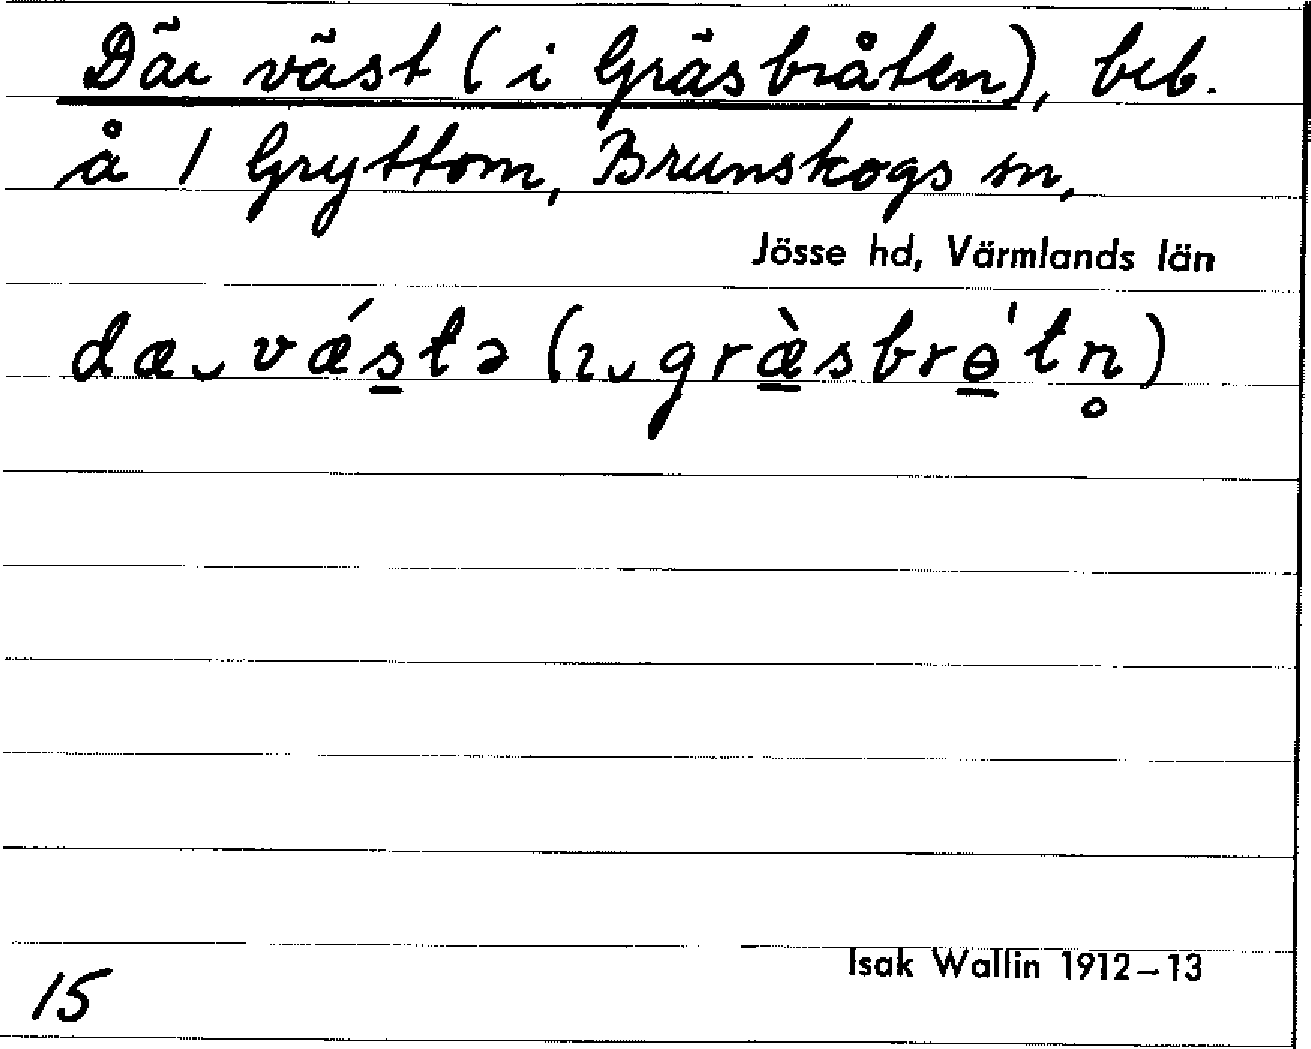 Där väst (i Gräsbråten), beb.
å 1 Gryttom, Brunskogs sn,
Jösse hd, Värmlands län
dæ‿vǽs̲tə (ɪ‿græ̲̀sbrɵ̲'tn̥)
Isak Wallin 1912–13
15